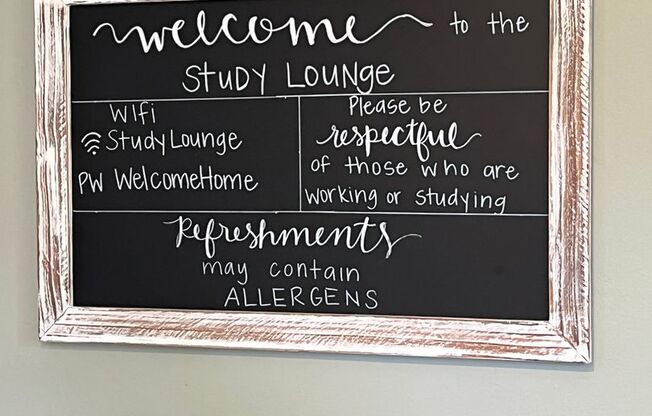 welcome to the
STUDY LOUNGE
WIFI
StudyLounge
PW WelcomeHome
Please be
respectful
of those who are
working or studying
Refreshments
may contain
ALLERGENS